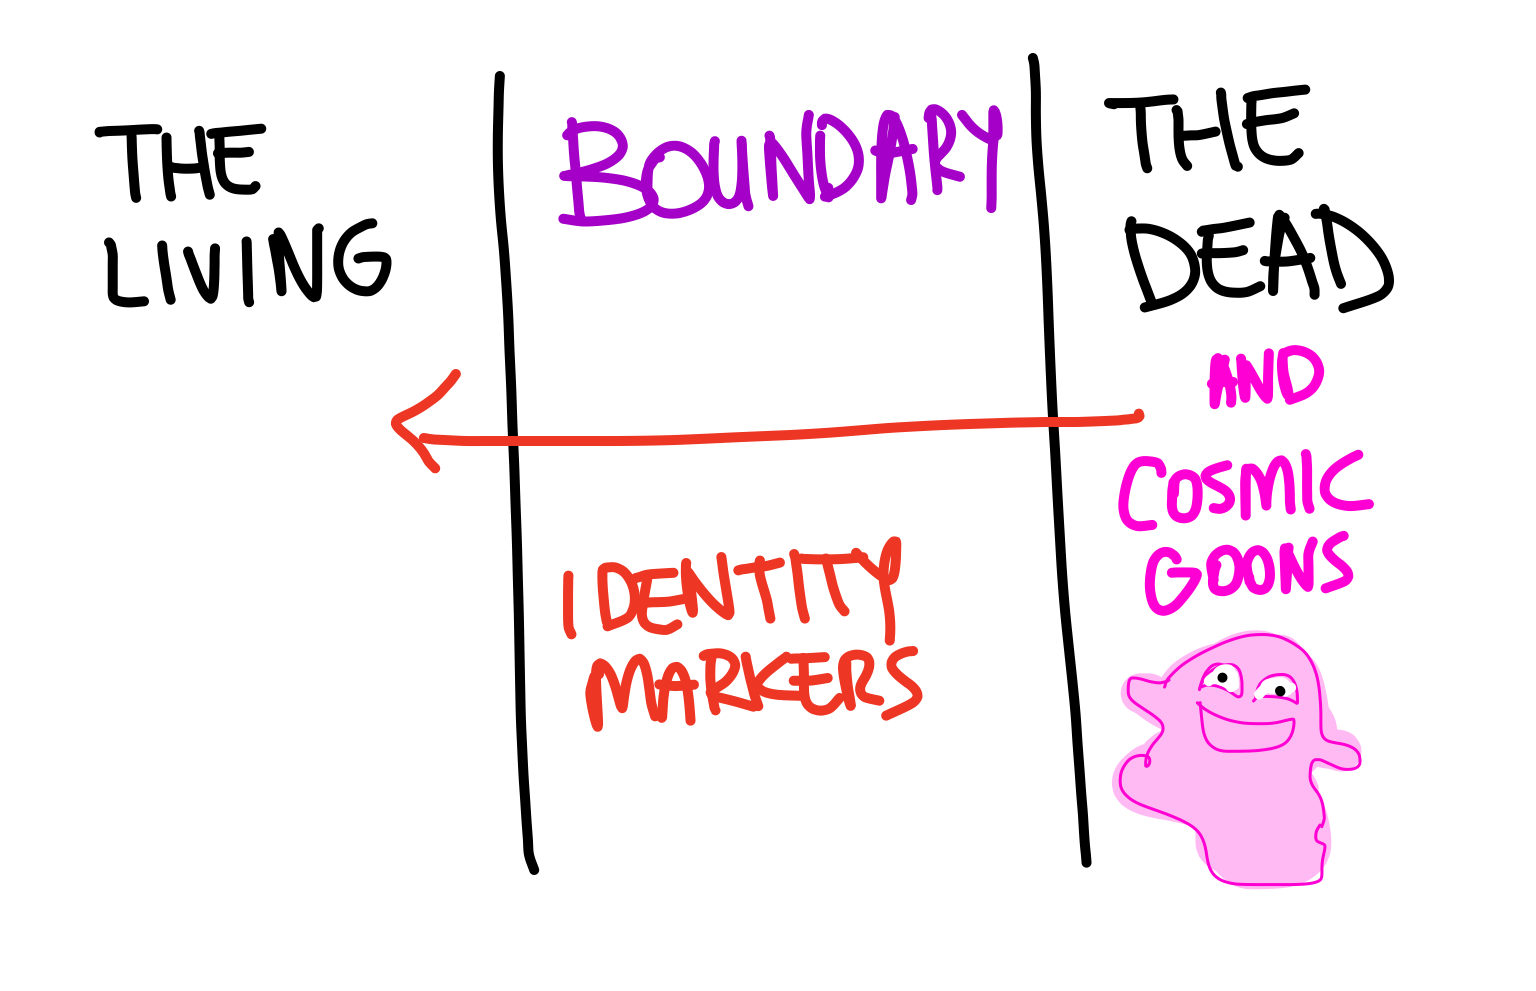 THE
LIVING
BOUNDARY
IDENTITY
MARKERS
THE
DEAD
AND
COSMIC
GOONS